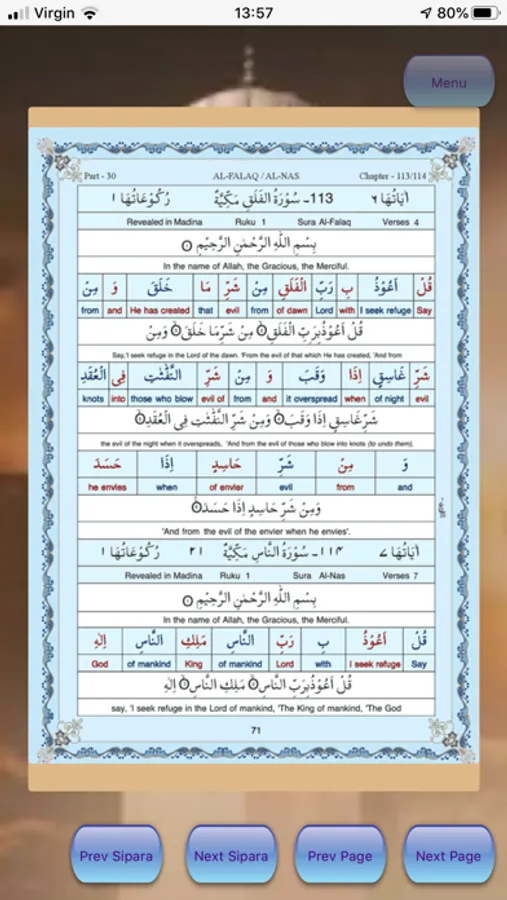 Virgin 13:57 80%
Menu
Part - 30 AL-FALAQ / AL-NAS Chapter - 113/114
اٰیَاتُهَا ٦ 113- سُوْرَةُ الْفَلَقِ مَكِّیَّةٌ رُكُوْعَاتُهَا ١
Revealed in Madina Ruku 1 Sura Al-Falaq Verses 4
بِسْمِ اللّٰهِ الرَّحْمٰنِ الرَّحِیْمِ
In the name of Allah, the Gracious, the Merciful.
قُلْ اَعُوْذُ بِ رَبِّ الْفَلَقِ مِنْ شَرِّ مَا خَلَقَ وَ مِنْ
from and He has created that evil from of dawn Lord with I seek refuge Say
قُلْ اَعُوْذُ بِرَبِّ الْفَلَقِ مِنْ شَرِّ مَا خَلَقَ وَمِنْ
Say,'I seek refuge in the Lord of the dawn. 'From the evil of that which He has created, 'And from
شَرِّ غَاسِقٍ اِذَا وَقَبَ وَ مِنْ شَرِّ النَّفّٰثٰتِ فِی الْعُقَدِ
knots into those who blow evil of from and it overspread when of night evil
شَرِّ غَاسِقٍ اِذَا وَقَبَ وَمِنْ شَرِّ النَّفّٰثٰتِ فِی الْعُقَدِ
the evil of the night when it overspreads, 'And from the evil of those who blow into knots (to undo them),
وَ مِنْ شَرِّ حَاسِدٍ اِذَا حَسَدَ
he envies when of envier evil from and
وَمِنْ شَرِّ حَاسِدٍ اِذَا حَسَدَ
'And from the evil of the envier when he envies'.
اٰیَاتُهَا ٧ ١١٤- سُوْرَةُ النَّاسِ مَكِّیَّةٌ ٢١ رُكُوْعَاتُهَا ١
Revealed in Madina Ruku 1 Sura Al-Nas Verses 7
بِسْمِ اللّٰهِ الرَّحْمٰنِ الرَّحِیْمِ
In the name of Allah, the Gracious, the Merciful.
قُلْ اَعُوْذُ بِ رَبِّ النَّاسِ مَلِكِ النَّاسِ اِلٰهِ
God of mankind King of mankind Lord with I seek refuge Say
قُلْ اَعُوْذُ بِرَبِّ النَّاسِ مَلِكِ النَّاسِ اِلٰهِ
say, 'I seek refuge in the Lord of mankind, 'The King of mankind, 'The God
71
Prev Sipara Next Sipara Prev Page Next Page